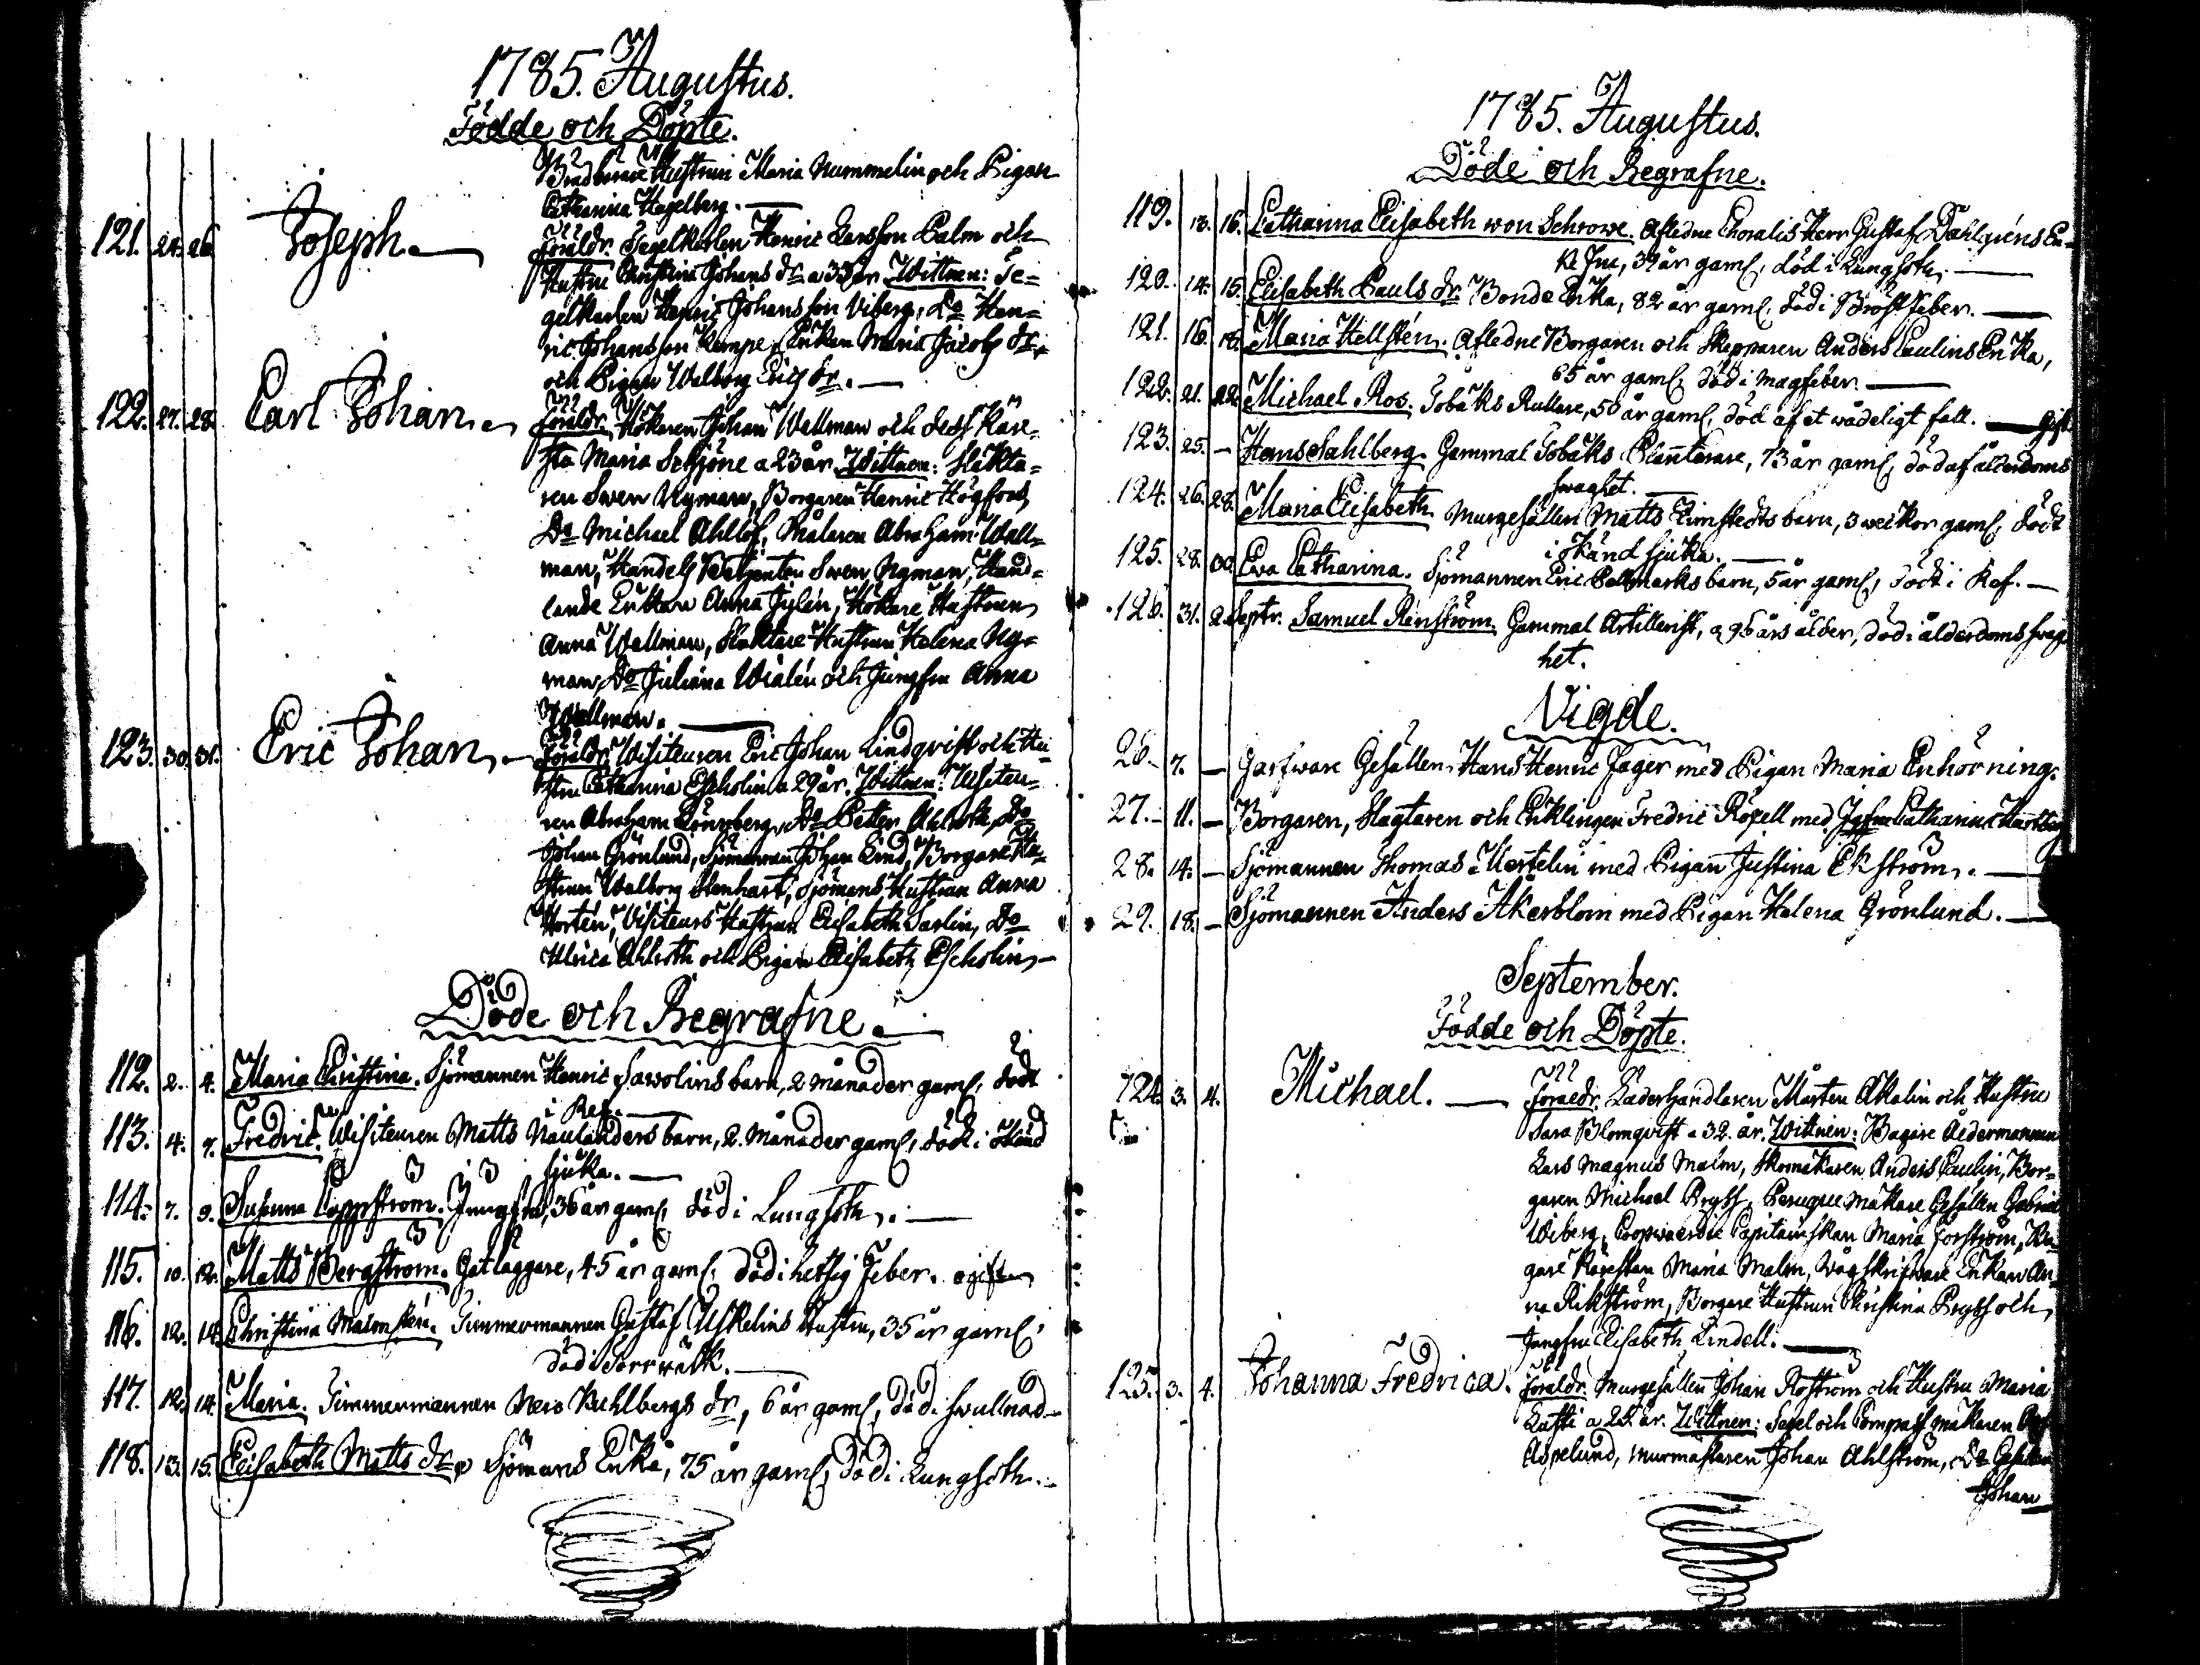 1785. Augustus.
Födde och Döpte.
Hustrun Maria Nummelin och Pigan
Catharina Hagelberg.
121. 24. 26. Joseph. Föräldr. Segelkarlen Henric Larsson Palm och
Hustru Christina Johans dr a 33 år Wittnen: Se=
gelkarlen Henric Johansson Viberg, Do Hen=
ric Johansson Kempe, Enkan Maria Jacobs dr
och Pigan Walborg Erics dr.
122. 27. 28. Carl Johan. Föräldr. Hökaren Johan Wallman och dess Käre=
sta Maria Schjöne a 23 år. Wittnen: Slakta=
ren Swen Nyman, Borgaren Henric Högfors,
Do Michael Ahllöf, Målaren Abraham Wall=
man, Handels Betjenten Swen Nyman, Hand=
lande Enkan Anna Jylén, Hökare Hustrun
Anna Wallman, Slaktare Hustrun Helena Ny=
man, Do Juliana Widlén och Jungfru Anna
Wallman.
123. 30. 31. Eric Johan. Föräldr. Visiteuren Eric Johan Lindqvist och Hu=
stru Catharina Escholin a 29 år. Wittnen: Visiteu=
ren Abraham Lönnberg, Do Petter Ahlroth, Do
Johan Grönlund, Sjömannen Johan Lind, Borgare Hu=
strun Walborg Stenhart, Sjömans Hustrun Anna
Hortén, Visiteurs Hustrun Elisabeth Sarlin, Do
Ulrica Ahlroth och Pigan Elisabeth Escholin.
Döde och Begrafne.
112. 2. 4. Maria Christina. Sjömannen Henric Sawolins barn, 2 månader gaml, död
i
113. 4. 7. Fredric. Visiteuren Matts Naulanders barn, 2. Månader gaml, död i okänd
sjuka.
114. 7. 9. Susanna Coppström. Jungfru, 36 år gaml, död i Lungsoth.
115. 10. 12. Matts Bergström. Gatläggare, 45 år gaml, död i hetsig Feber. ogift
116. 12. 14. Christina Malmstén. Timmermannen Gustaf Uskelins Hustru, 35 år gaml,
död i Torrwärk.
117. 12. 14. Maria. Timmermannen Kuhlbergs dr, 6 år gaml, död i swullnad
118. 13. 15. Elisabeth Matts dr. Sjömans Enka, 75 år gaml, död i Lungsoth.
1785. Augustus.
Döde och Begrafne.
119. 13. 16. Catharina Elisabeth von Schrowe. Afledne Choralis Herr Gustaf Dahlgréns En=
ke Fru, 39 år gaml, död i Lungsoth.
120. 14. 15. Elisabeth Pauls dr. Bonde Enka, 82 år gaml, död i Bröst feber.
121. 16. 18. Maria Hellstén. Afledne Borgaren och Skepparen Anders Paulins Enka,
65 år gaml, död i magfeber.
122. 21. 22. Michael Ros. Tobaks Rullare, 50 år gaml, död af et wådeligt fall. Gift
123. 25. Hans Sahlberg. Gammal Tobaks Planterare, 73 år gaml, död af ålderdoms
swaghet.
124. 26. 28. Maria Elisabeth. Murgesällen Matts Limstedts barn, 3 weckor gaml, död
i okänd sjuka.
125. 28. 30. Eva Catharina. Sjömannen Eric Bellmarks barn, 5 år gaml, död i Rof.
126. 31. 2. Septr. Samuel Renström. Gammal Artillerist, a 96 års ålder, död i ålderdoms swag
het.
Vigde.
26. 7. Garfware Gesällen Hans Henric Jäger med Pigan Maria Enhörning.
27. 11. Borgaren, Slagtaren och Enklingen Fredric Röpell med Jgfru Catharina
28. 14. Sjömannen Thomas Mertelin med Pigan Justina Ekström.
29. 18. Sjömannen Anders Åkerblom med Pigan Helena Grönlund.
September.
Födde och Döpte.
124. 3. 4. Michael. Föraldr. Läderhandlaren Mårten Akalin och Hustru
Sara Blomqvist a 32 år. Wittnen: Bagare Åldermannen
Lars Magnus Malm, Skomakaren Anders Paulin, Bor=
garen Michael Bryss, Peruque Makare Gesällen Gabriel
Wiberg, Coopvaerdie Capitainskan Maria Forström, Ba=
gare Kärestan Maria Malm, Wågskrifware Enkan An=
na Rikström, Borgare Hustrun Christina Bryss och
Jungfru Elisabeth Lindell.
125. 3. 4. Johanna Fredrica. Föräldr. Murgesällen Johan Roström och Hustru Maria
Lasti a 25 år. Wittnen: Segel och Compass makaren
Aspelund, Murmästaren Johan Ahlström, Do Gesällen
Johan